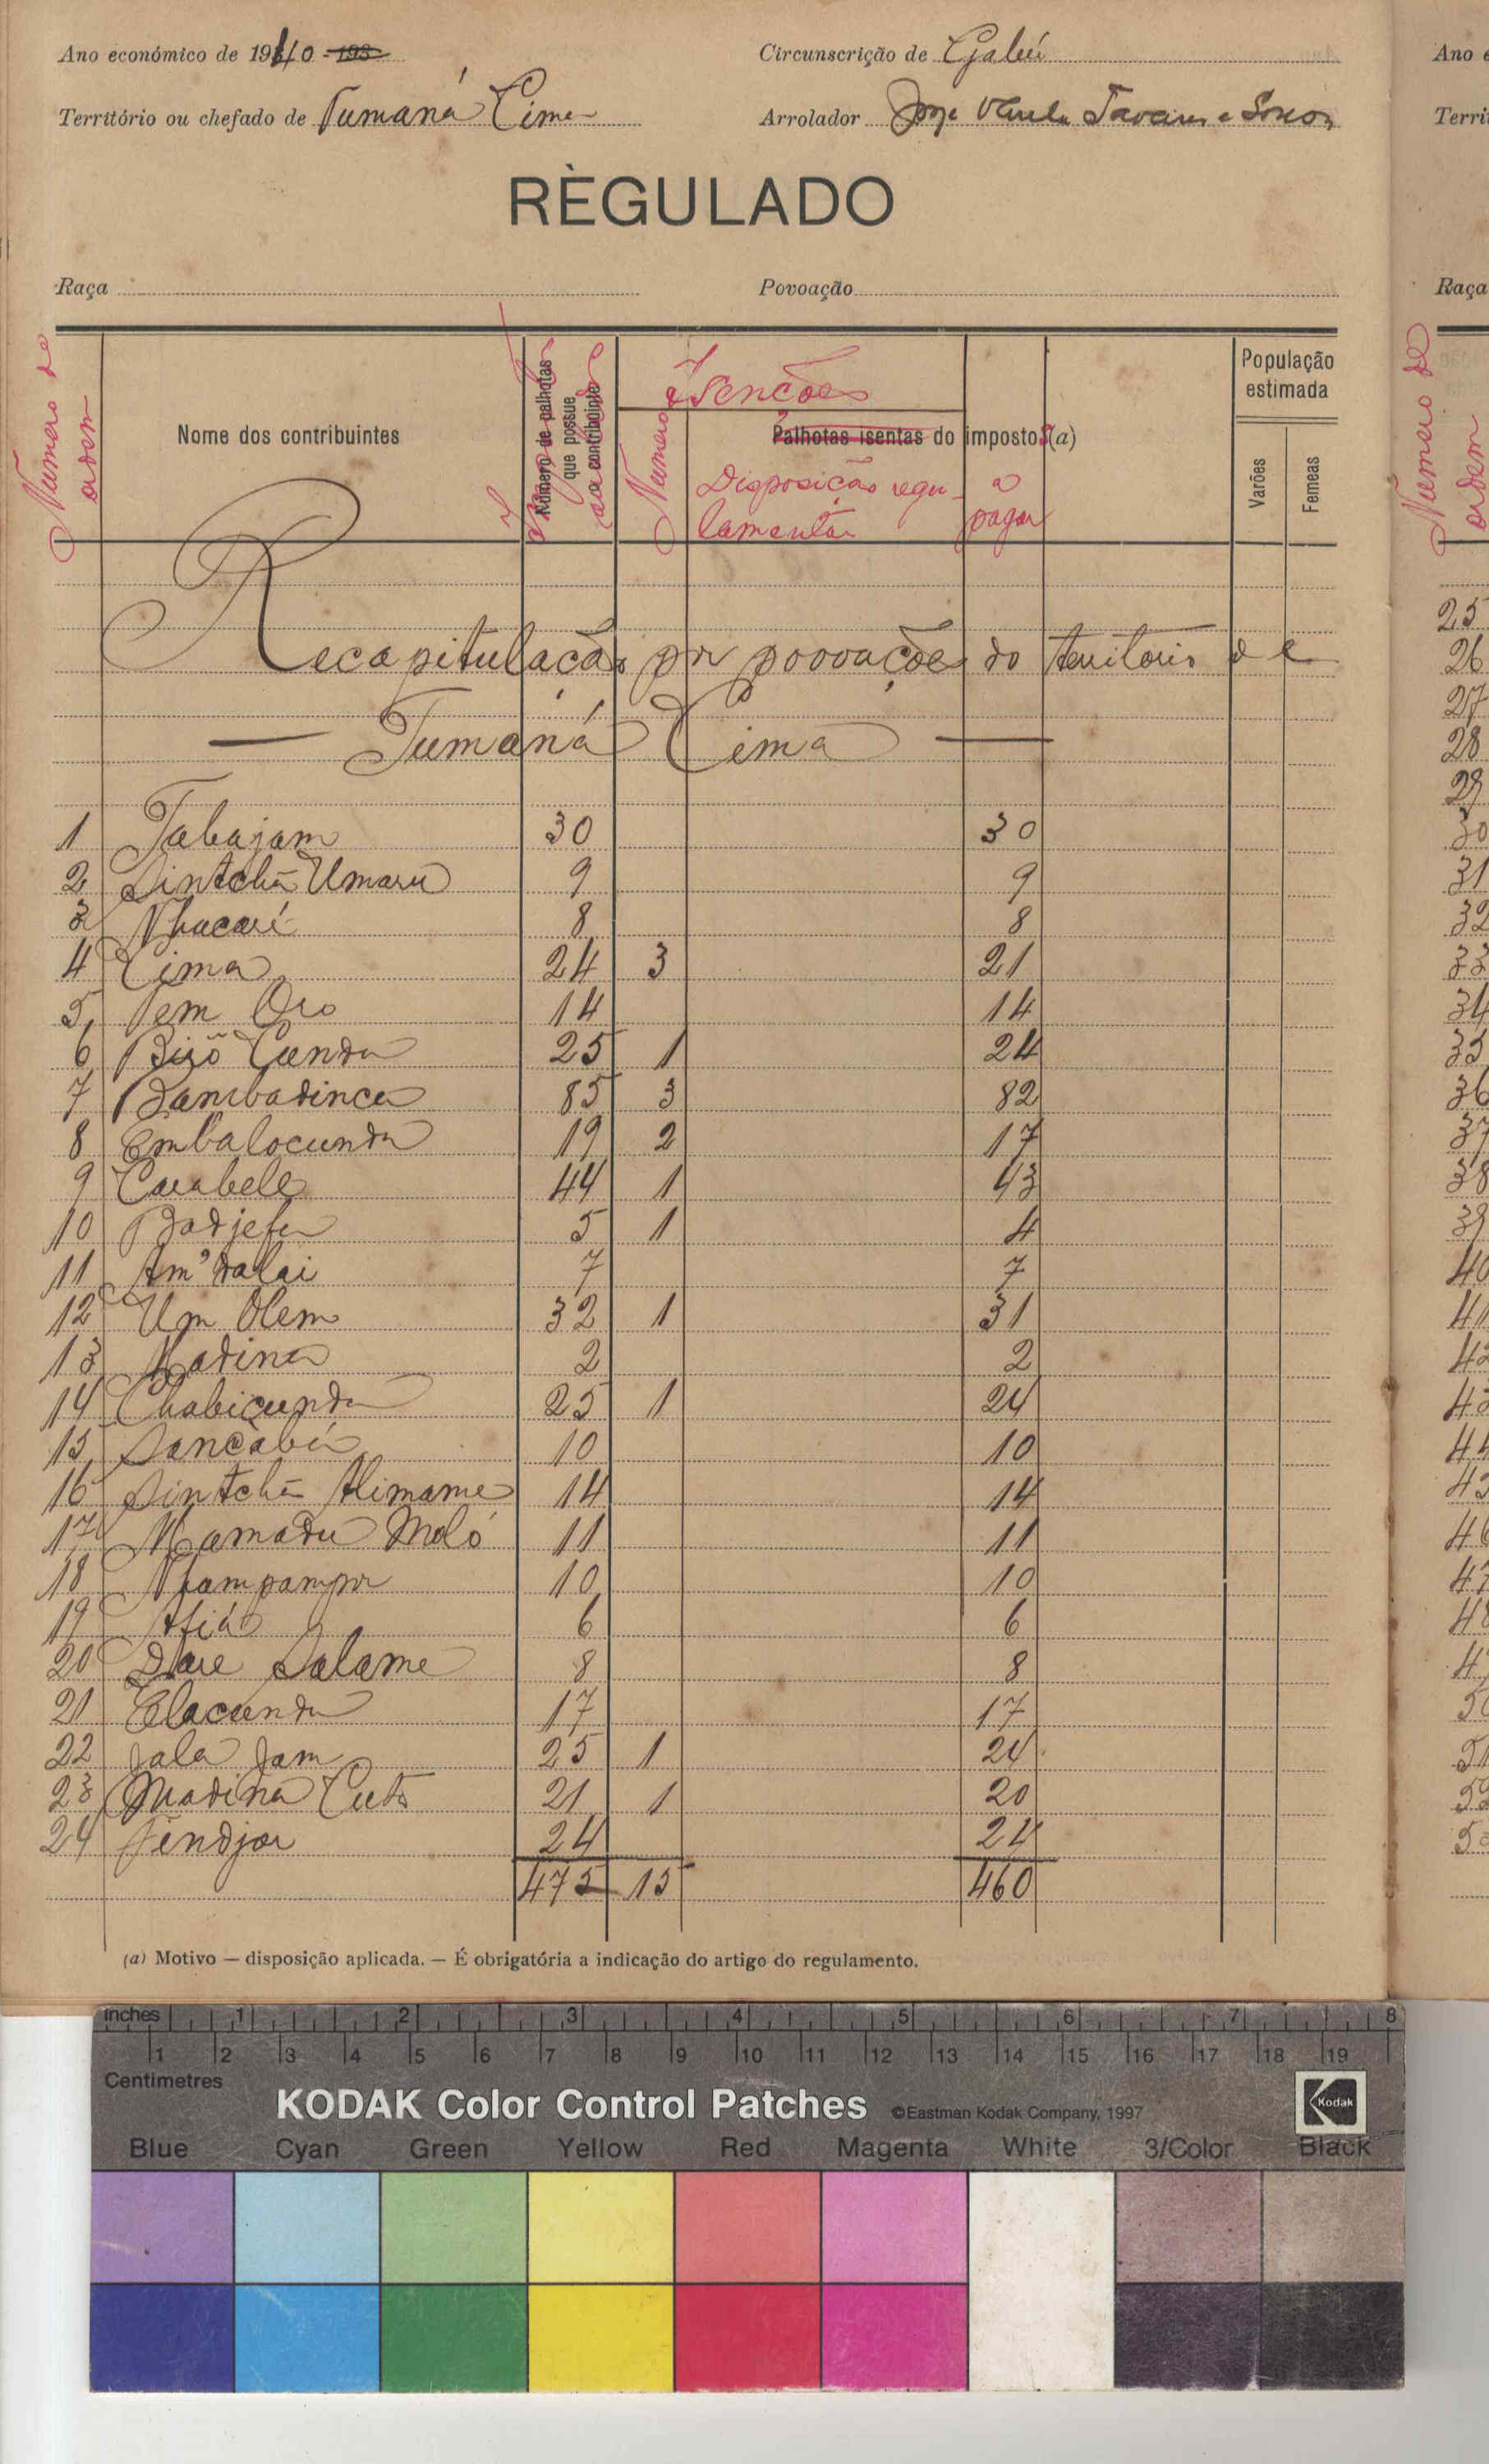 Ano económico de 1940 - 193
Circunscrição de Gabú
Território ou chefado de Tumaná Cima
Arrolador Jorge Tavares e Sousa
RÈGULADO
Raça
Povoação
Numero de ordem
Nome dos contribuintes
Número de palhotas que possue o contribuinte
Isenções
Numero
Palhotas isentas do imposto (a)
Disposição regulamentar
Imposto a pagar
População estimada
Varões
Femeas
Recapitulação por povoações do territorio de
— Tumaná Cima —
1 Tabajam 30 30
2 Sintchã Umaru 9 9
3 Nhacaré 8 8
4 Cima 24 3 21
5 Tem Oro 14 14
6 Bijó Cunda 25 1 24
7 Bambadinca 85 3 82
8 Embalocunda 19 2 17
9 Carabele 44 1 43
10 Badjefa 5 1 4
11 Am'dalai 7 7
12 Um Olem 32 1 31
13 Madina 2 2
14 Chabicunda 25 1 24
15 10 10
16 Sintchã Alimame 14 14
17 Mamadu Moló 11 11
18 Nhampampor 10 10
19 Afiá 6 6
20 Dare Salame 8 8
21 Elacunda 17 17
22 Jala Jam 25 1 24
23 Madina Cuto 21 1 20
24 Sendjor 24 24
475 15 460
(a) Motivo — disposição aplicada. — É obrigatória a indicação do artigo do regulamento.
Ano e
Terri
Raça
Numero de ordem
25
26
27
28
29
30
31
32
33
34
35
36
37
38
39
40
41
42
43
44
45
46
47
48
4
50
51
52
53
inches 1 2 3 4 5 6 7 8
1 2 3 4 5 6 7 8 9 10 11 12 13 14 15 16 17 18 19
Centimetres
KODAK Color Control Patches ©Eastman Kodak Company, 1997 Kodak
Blue Cyan Green Yellow Red Magenta White 3/Color Black